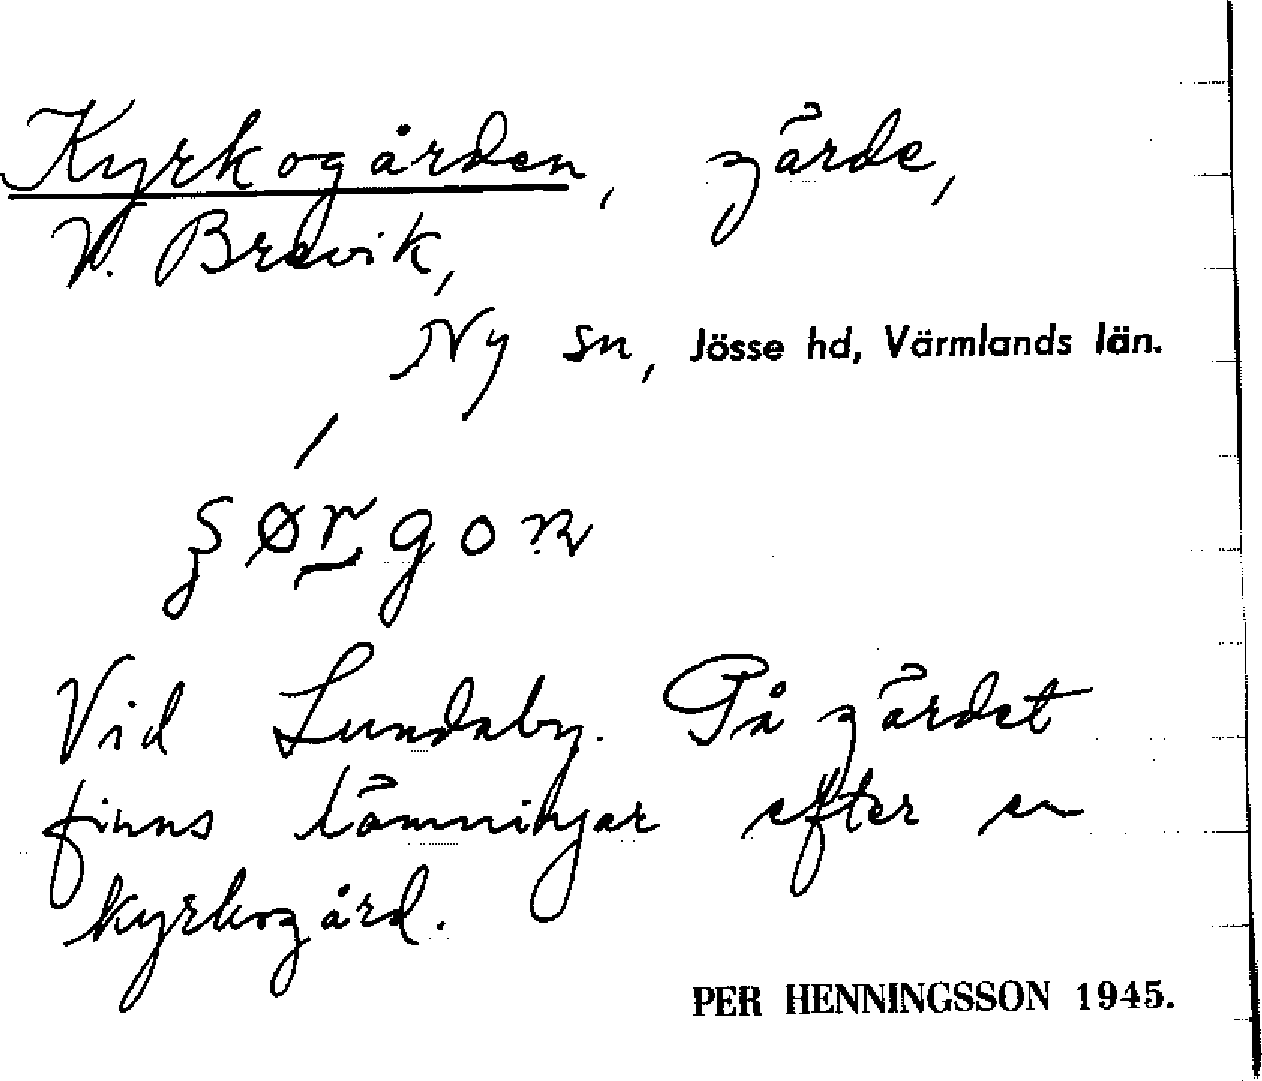 Kyrkogården, gärde,
V. Brevik,
Ny sn, Jösse hd, Värmlands län.
Vid Lundsby. På gärdet
finns lämningar efter en
kyrkogård.
PER HENNINGSSON 1945.